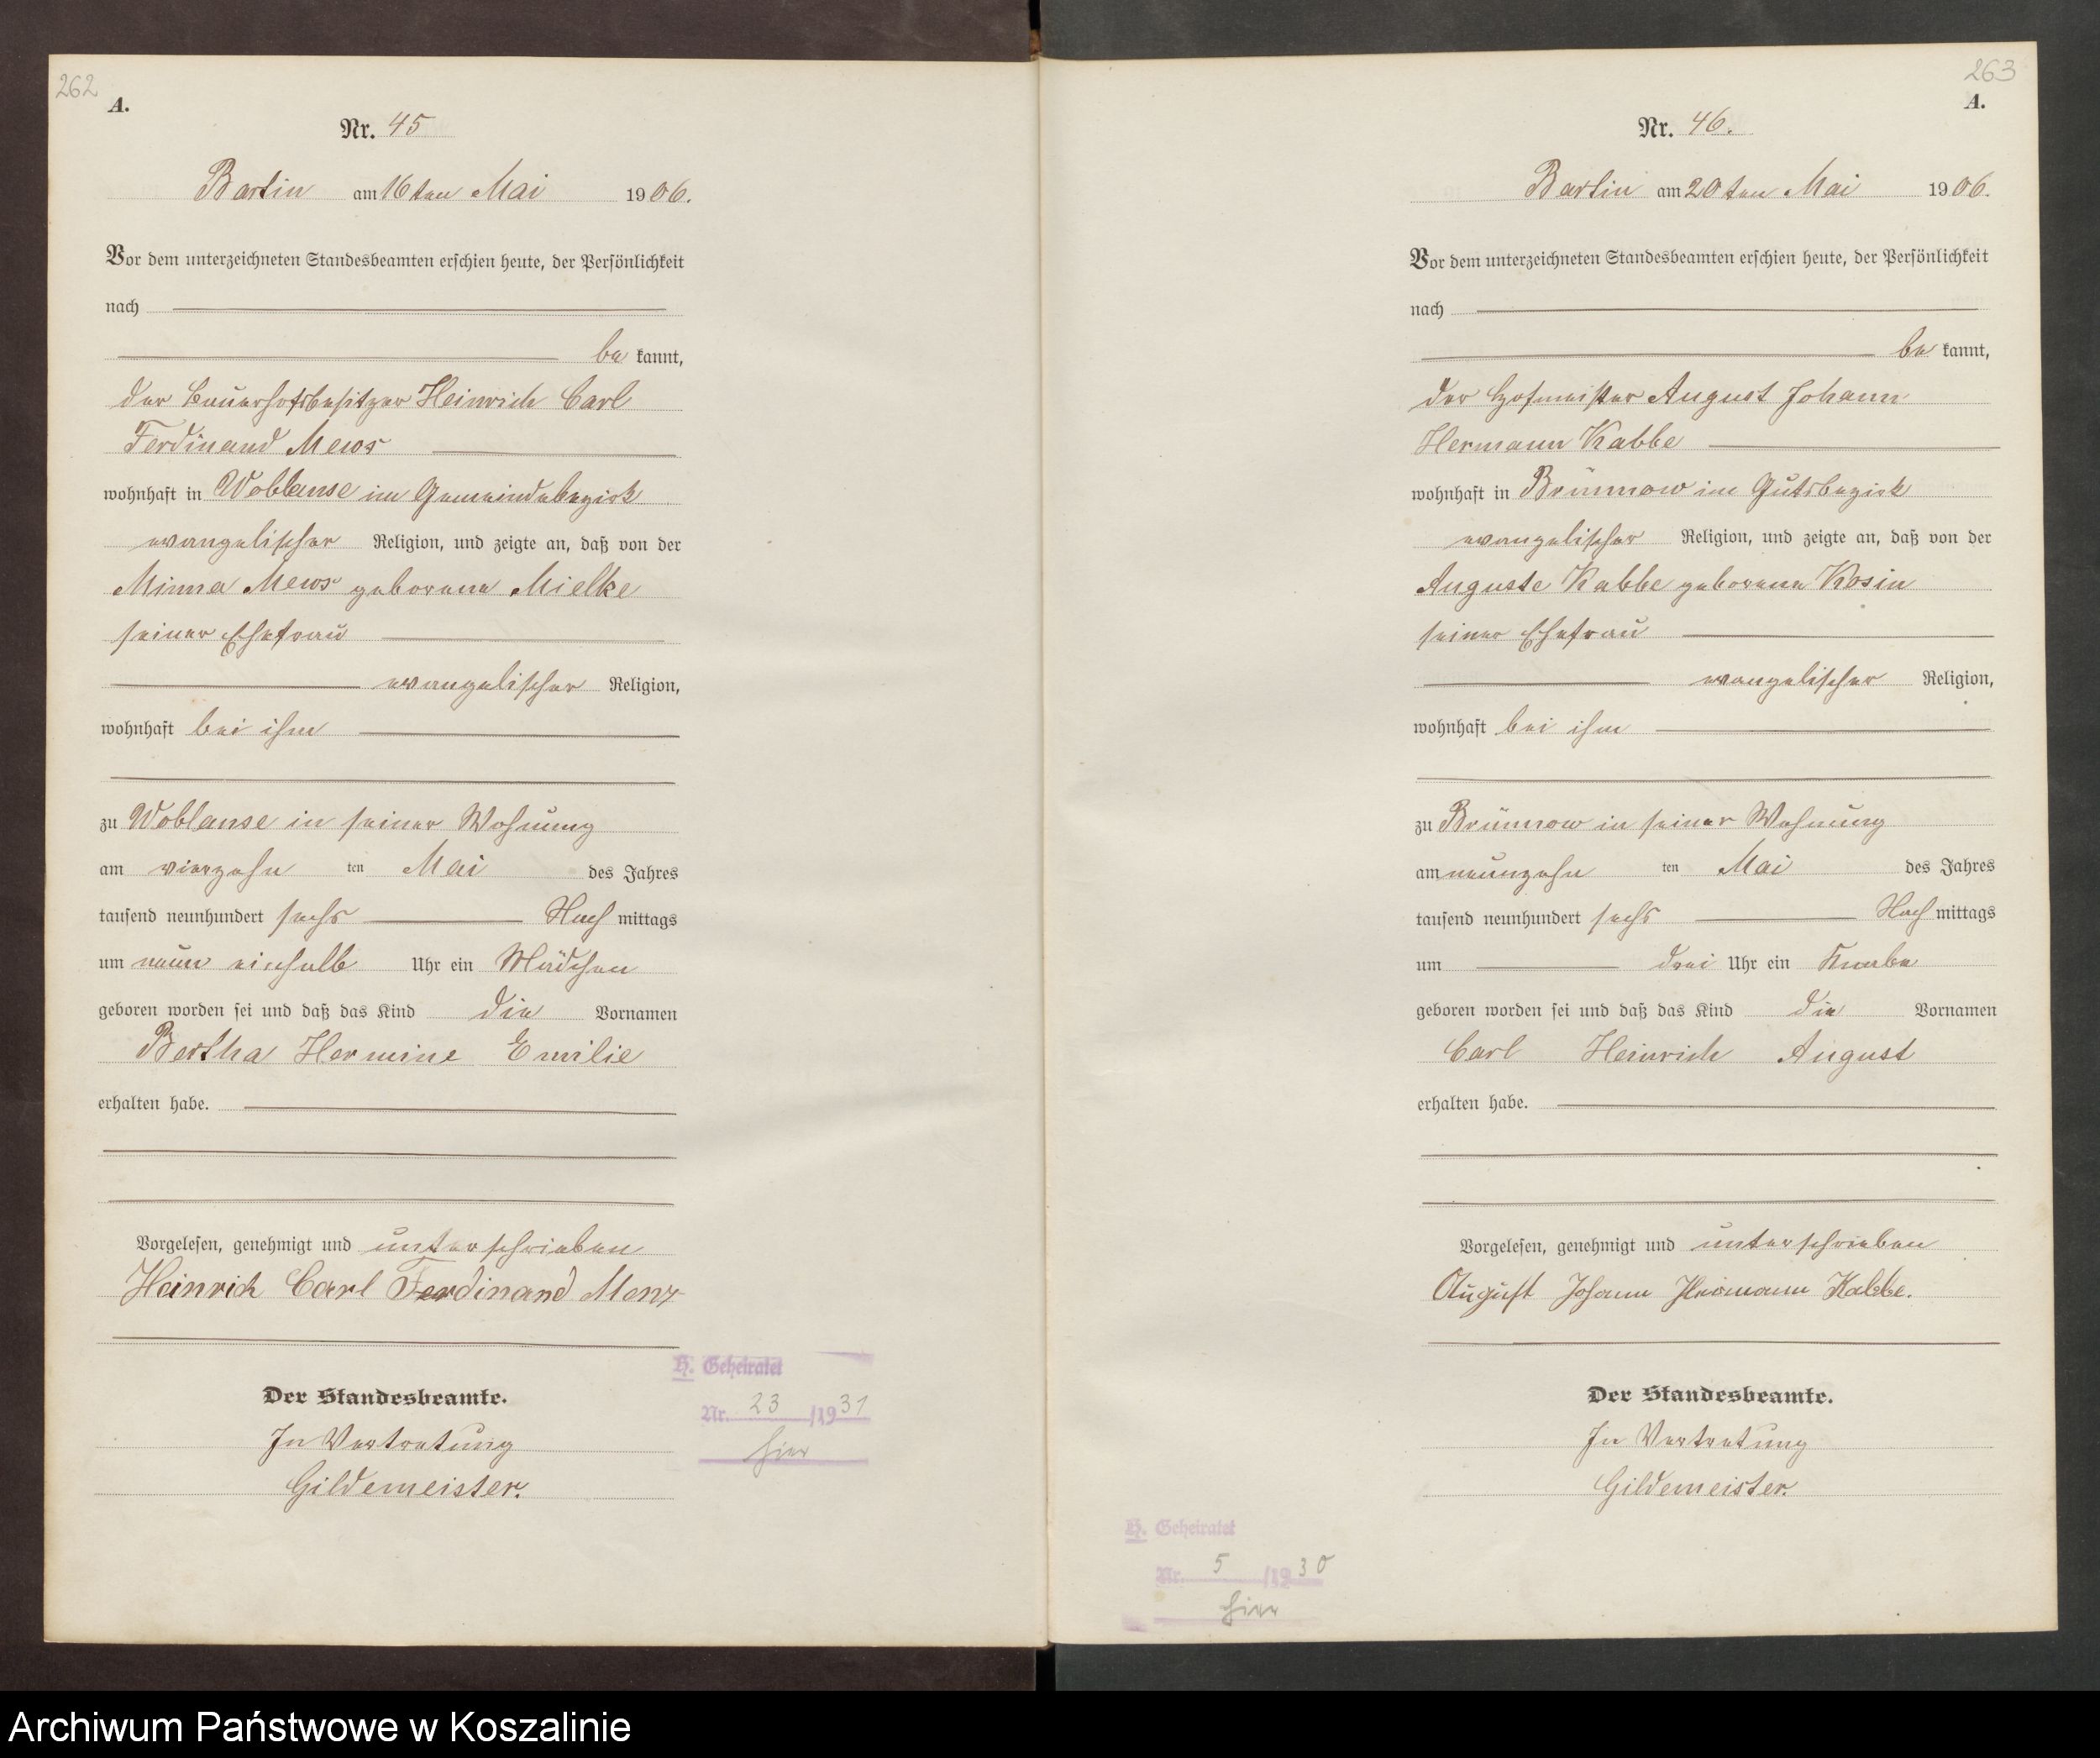 262
A.
Nr. 45
Bartin am 16ten Mai 1906.
Vor dem unterzeichneten Standesbeamten erschien heute, der Persönlichkeit
nach
be kannt,
der Bauerhofsbesitzer Heinrich Carl
Ferdinand Mews
wohnhaft in Woblanse im Gemeindebezirk
evangelischer Religion, und zeigte an, daß von der
Minna Mews geborene Mielke
seiner Ehefrau
evangelischer Religion,
wohnhaft bei ihm
zu Woblanse in seiner Wohnung
am vierzehn ten Mai des Jahres
tausend neunhundert sechs Nach mittags
um neun einhalb Uhr ein Mädchen
geboren worden sei und daß das Kind die Vornamen
Bertha Hermine Emilie
erhalten habe.
Vorgelesen, genehmigt und unterschrieben
Heinrich Carl Ferdinand Mews
Der Standesbeamte.
In Vertretung
Gildemeister.
H. Geheiratet
Nr. 23 /1931
hier
263
A.
Nr. 46.
Bartin am 20ten Mai 1906.
Vor dem unterzeichneten Standesbeamten erschien heute, der Persönlichkeit
nach
be kannt,
der Hofmeister August Johann
Hermann Kabbe
wohnhaft in Brünnow im Gutsbezirk
evangelischer Religion, und zeigte an, daß von der
Auguste Kabbe geborene Kosin
seiner Ehefrau
evangelischer Religion,
wohnhaft bei ihm
zu Brünnow in seiner Wohnung
am neunzehn ten Mai des Jahres
tausend neunhundert sechs Nach mittags
um drei Uhr ein Knabe
geboren worden sei und daß das Kind die Vornamen
Carl Heinrich August
erhalten habe.
Vorgelesen, genehmigt und unterschrieben
August Johann Hermann Kabbe.
Der Standesbeamte.
In Vertretung
Gildemeister.
H. Geheiratet
Nr. 5 /1930
hier
Archiwum Państwowe w Koszalinie